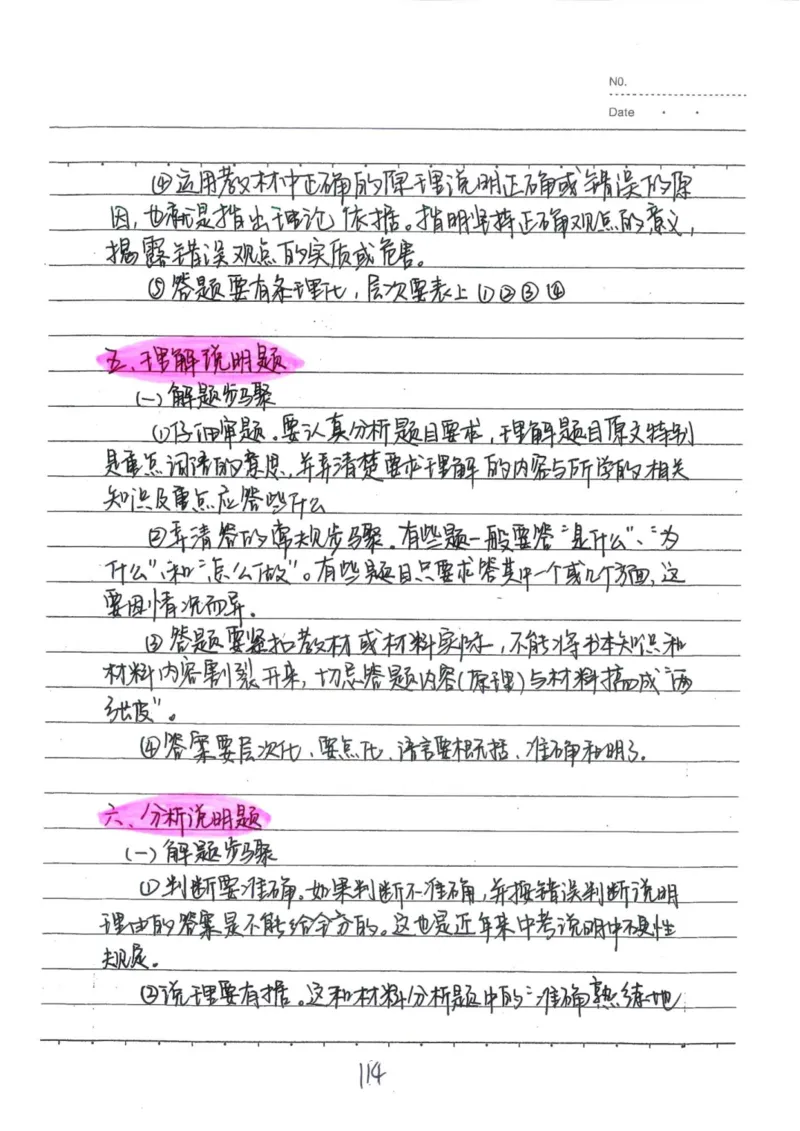 NO.
Date
④运用教材中正确的原理说明正确或错误的原
因,也就是指出理论依据。指明坚持正确观点的意义,
揭露错误观点的实质或危害。
⑤答题要有条理化,层次要表上①②③④
五、理解说明题
(一)解题步骤
①仔细审题。要认真分析题目要求,理解题目原文特别
是重点词语的意思,并弄清楚要求理解的内容与所学的相关
知识及重点应答些什么
②弄清答的常规步骤。有些题一般要答“是什么”、“为
什么”、和“怎么做”。有些题目只要求答其中一个或几个方面,这
要因情况而异。
③答题要紧扣教材或材料实际,不能将书本知识和
材料内容割裂开来,切忌答题内容(原理)与材料搞成“两
张皮”。
④答案要层次化、要点化、语言要概括、准确和明了。
六、分析说明题
(一)解题步骤
①判断要准确。如果判断不准确,并按错误判断说明
理由的答案是不能给分的。这也是近年来中考说明中
规定。
②说理要有据。这和材料分析题中的“准确熟练地
114